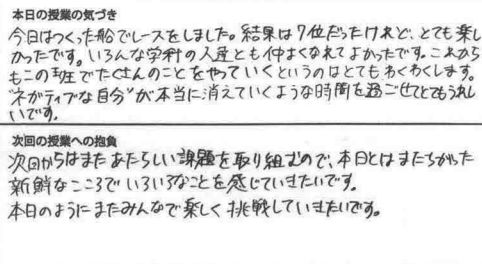 本日の授業の気づき
今日はつくった船でレースをしました。結果は7位だったけれど、とても楽し
かったです。いろんな学科の人達とも仲よくなれてよかったです。これから
もこの班でたくさんのことをやっていくというのはとてもわくわくします。
"ネガティブな自分"が本当に消えていくような時間を過ごせてとてもうれし
いです。
次回の授業への抱負
次回からはまたあたらしい課題を取り組むので、本日とはまたちがった
新鮮なこころでいろいろなことを感じていきたいです。
本日のようにまたみんなで楽しく挑戦していきたいです。